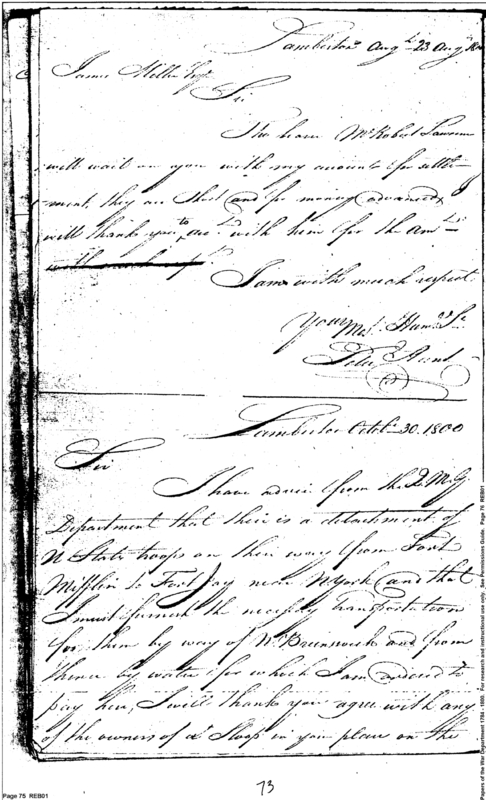 Lamberton Augt 23 Augt
James Miller Esqr
Sir
The bearer Mr Robert Lawrence
will wait on you with my accounts for settle-
ment, they are short and for money advanced,
will thank you to with him for the Amt
I am with much respect
Your Mo. Hum. St.
Peter Hunt
Lamberton Octobr 30. 1800
Sir
I have advice from the Qr M G
Department that their is a detachment of
U State troops on their way from Fort
Mifflin to Fort Jay near N York and that
I must furnish the necessy transportation
for them by way of N Brunswick and from
thence by water for which I am ordered to
pay here, I will thank you agree with any
of the owners of a Sloop in your place on the
73
Page 75 REB01
Papers of the War Department 1784 - 1800. For research and instructional use only. See Permissions Guide. Page 76 REB01